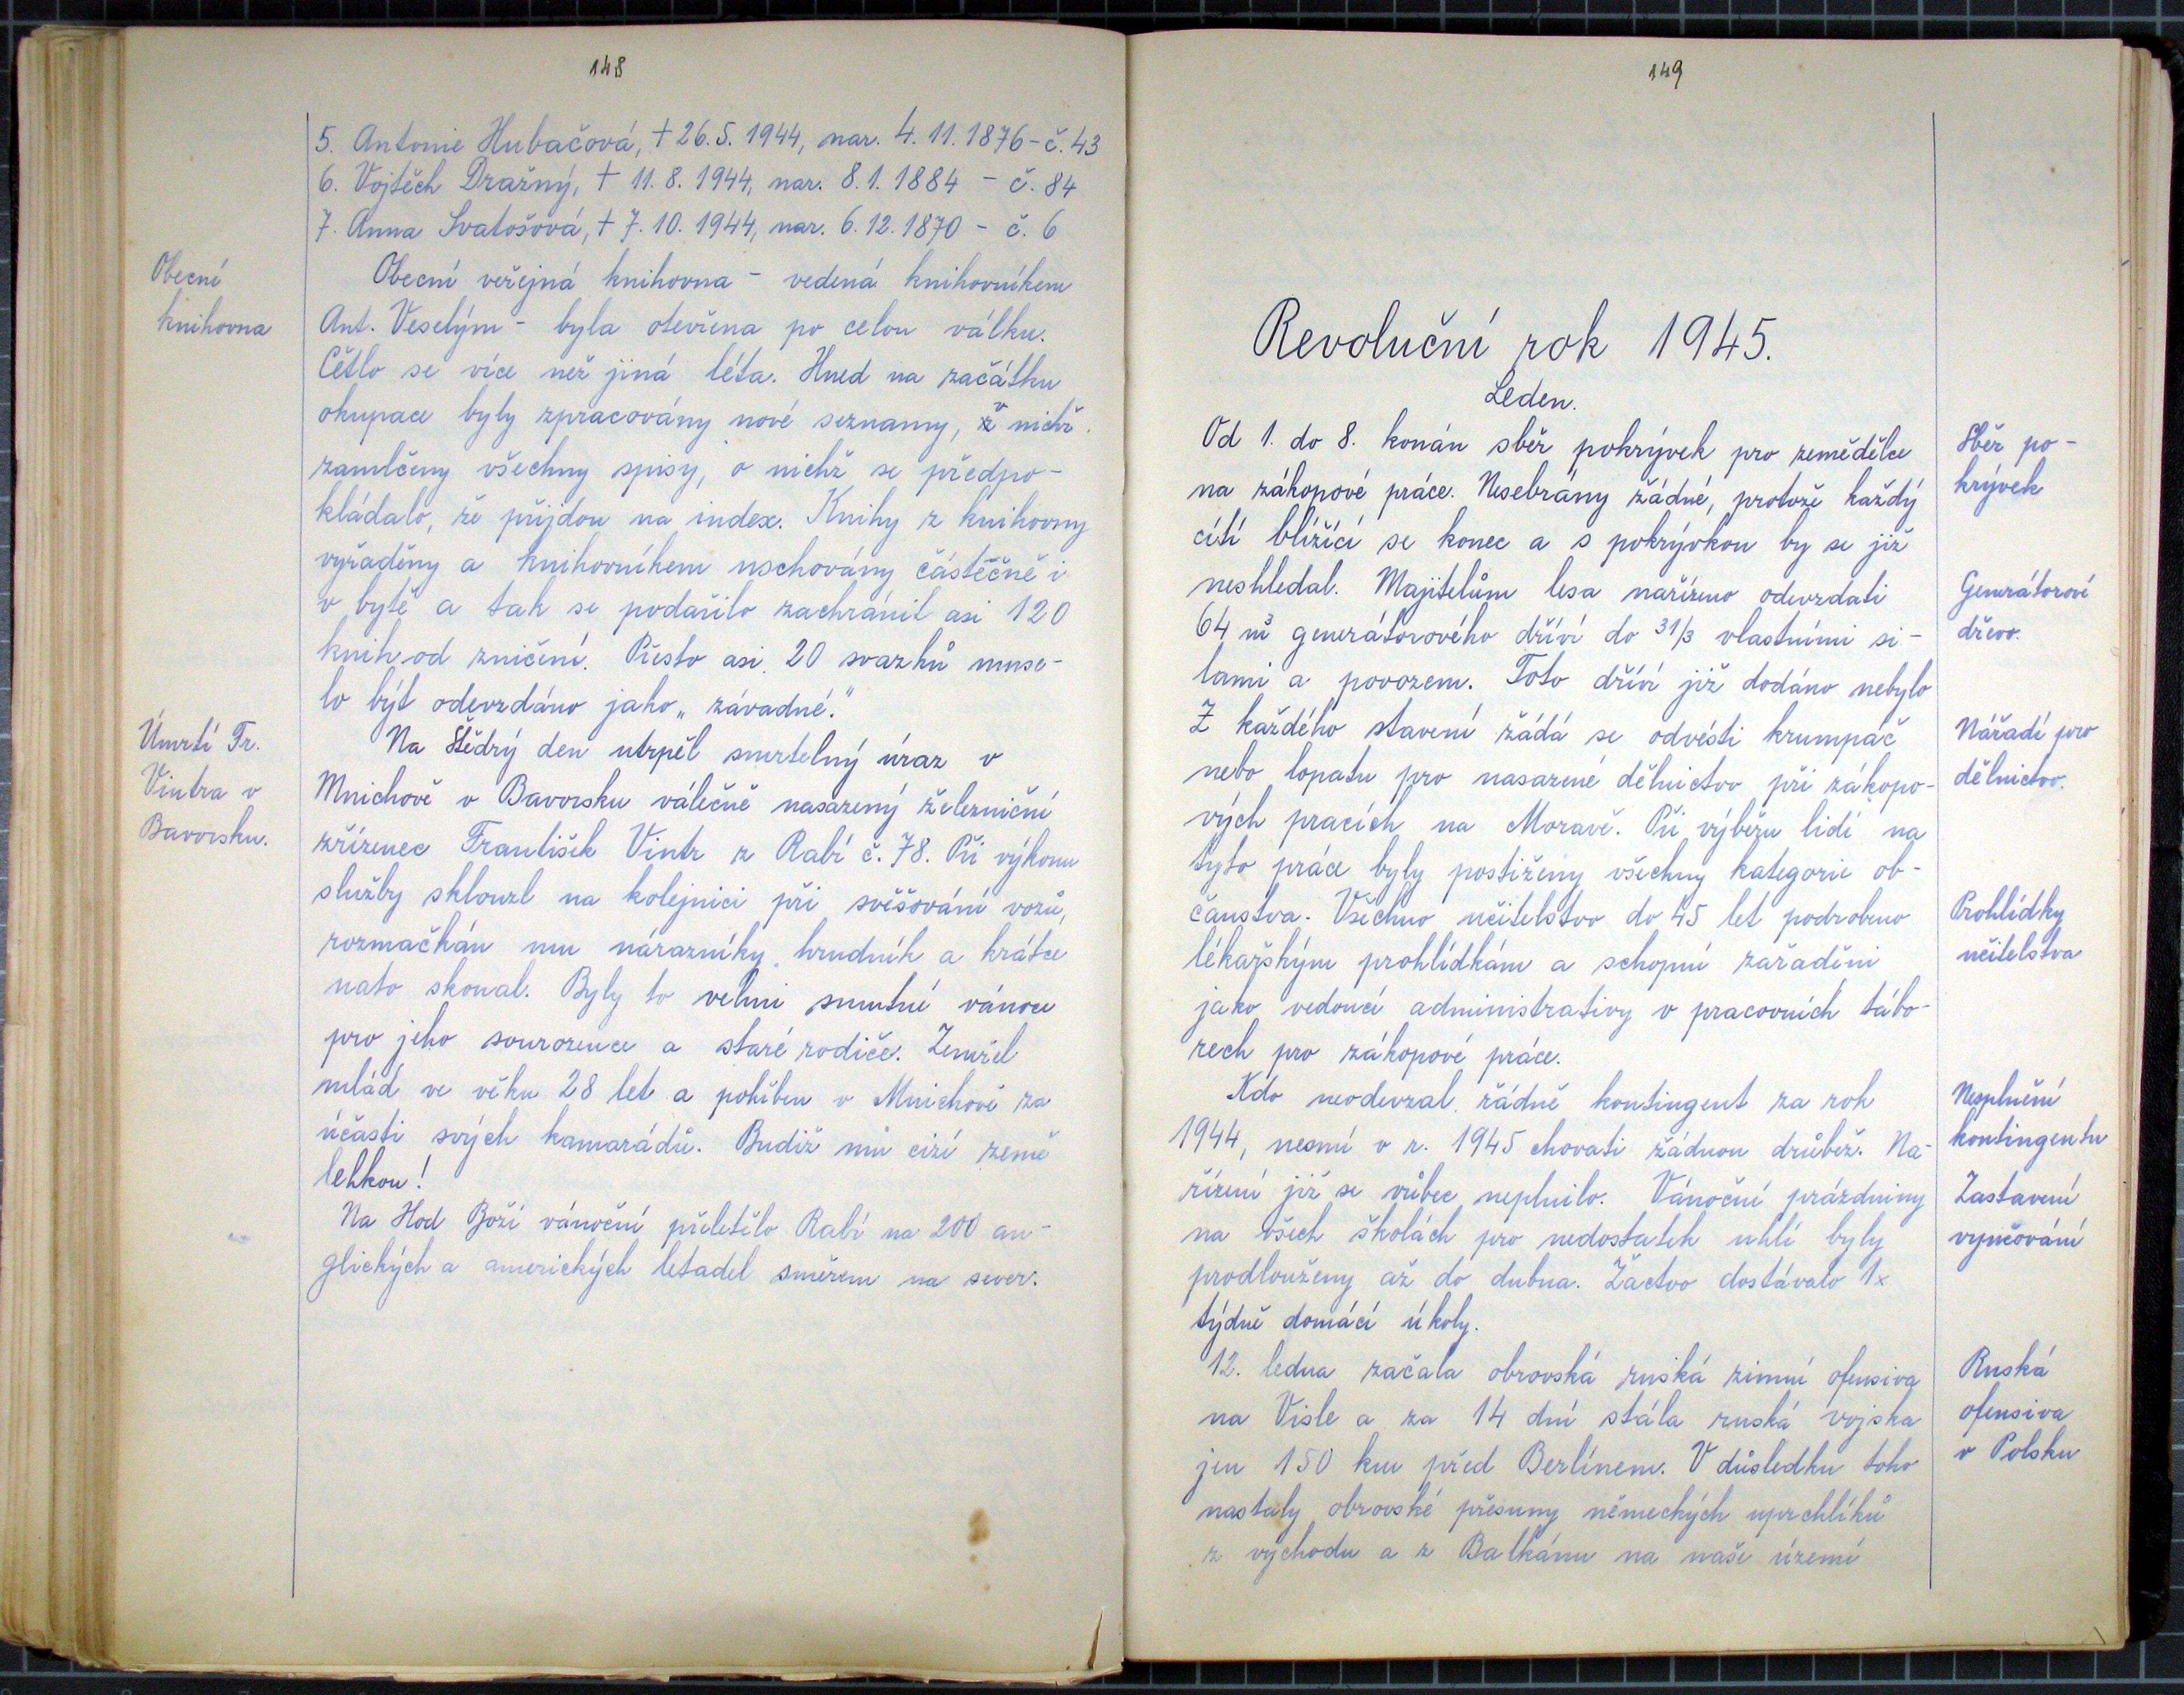 148
5. Antonie Hubačová, † 26.5.1944, nar. 4.11.1876 - č. 43
6. Vojtěch Dražný, † 11.8.1944, nar. 8.1.1884 - č. 84
7. Anna Svatošová, † 7.10.1944, nar. 6.12.1870 - č. 6
Obecní
knihovna
Obecní veřejná knihovna - vedená knihovníkem
Ant. Veselým - byla otevřena po celou válku.
Četlo se více než jiná léta. Hned na začátku
okupace byly zpracovány nové seznamy, v nichž
zamlčeny všechny spisy, o nichž se předpo-
kládalo, že přijdou na index. Knihy z knihovny
vyřaděny a knihovníkem uschovány částečně i
v bytě a tak se podařilo zachránit asi 120
knih od zničení. Přesto asi 20 svazků muse-
lo být odevzdáno jako „závadné."
Úmrtí Fr.
Vintra v
Bavorsku.
Na Štědrý den utrpěl smrtelný úraz v
Mnichově v Bavorsku válečně nasazený železniční
zřízenec František Vintr z Rabí č. 78. Při výkonu
služby sklouzl na kolejnici při svěšování vozů,
rozmačkán mu nárazníky hrudník a krátce
nato skonal. Byly to velmi smutné vánoce
pro jeho sourozence a staré rodiče. Zemřel
mlád ve věku 28 let a pohřben v Mnichově za
účasti svých kamarádů. Budiž mu cizí země
lehkou!
Na Hod Boží vánoční přeletělo Rabí na 200 an-
glických a amerických letadel směrem na sever.
149
Revoluční rok 1945.
Leden.
Od 1. do 8. konán sběr pokrývek pro zemědělce
na zákopové práce. Nesebrány žádné, protože každý
cítí blížící se konec a s pokrývkou by se již
neshledal. Majitelům lesa nařízeno odevzdati
64 m³ generátorového dříví do 31/3 vlastními si-
lami a povozem. Toto dříví již dodáno nebylo
Z každého stavení žádá se odvésti krumpáč
nebo lopatu pro nasazené dělnictvo při zákopo-
vých pracích na Moravě. Při výběru lidí na
tyto práce byly postiženy všechny kategorie ob-
čanstva. Všechno učitelstvo do 45 let podrobeno
lékařským prohlídkám a schopní zařaděni
jako vedoucí administrativy v pracovních tábo-
rech pro zákopové práce.
Kdo neodevzal řádně kontingent za rok
1944, nesmí v r. 1945 chovati žádnou drůbež. Na-
řízení již se vůbec neplnilo. Vánoční prázdniny
na všech školách pro nedostatek uhlí byly
prodlouženy až do dubna. Žactvo dostávalo 1x
týdně domácí úkoly.
12. ledna začala obrovská ruská zimní ofensiva
na Visle a za 14 dní stála ruská vojska
jen 150 km před Berlínem. V důsledku toho
nastaly obrovské přesuny německých uprchlíků
z východu a z Balkánu na naše území
Sběr po-
krývek
Generátorové
dřevo.
Nářadí pro
dělnictvo.
Prohlídky
učitelstva
Nesplnění
kontingentu
Zastavení
vyučování
Ruská
ofensiva
v Polsku